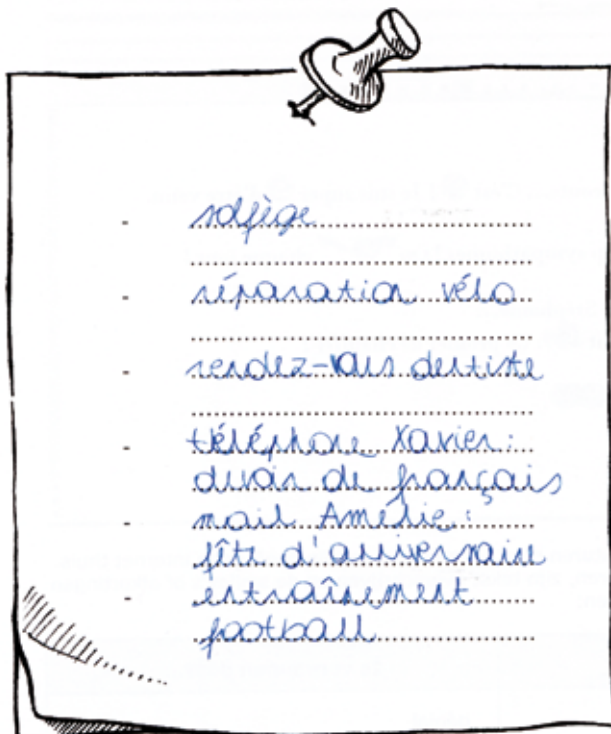 - solfège
- réparation vélo
- rendez-vous dentiste
- téléphone Xavier :
devoir de français
- mail Amélie :
fête d'anniversaire
- entraînement
football